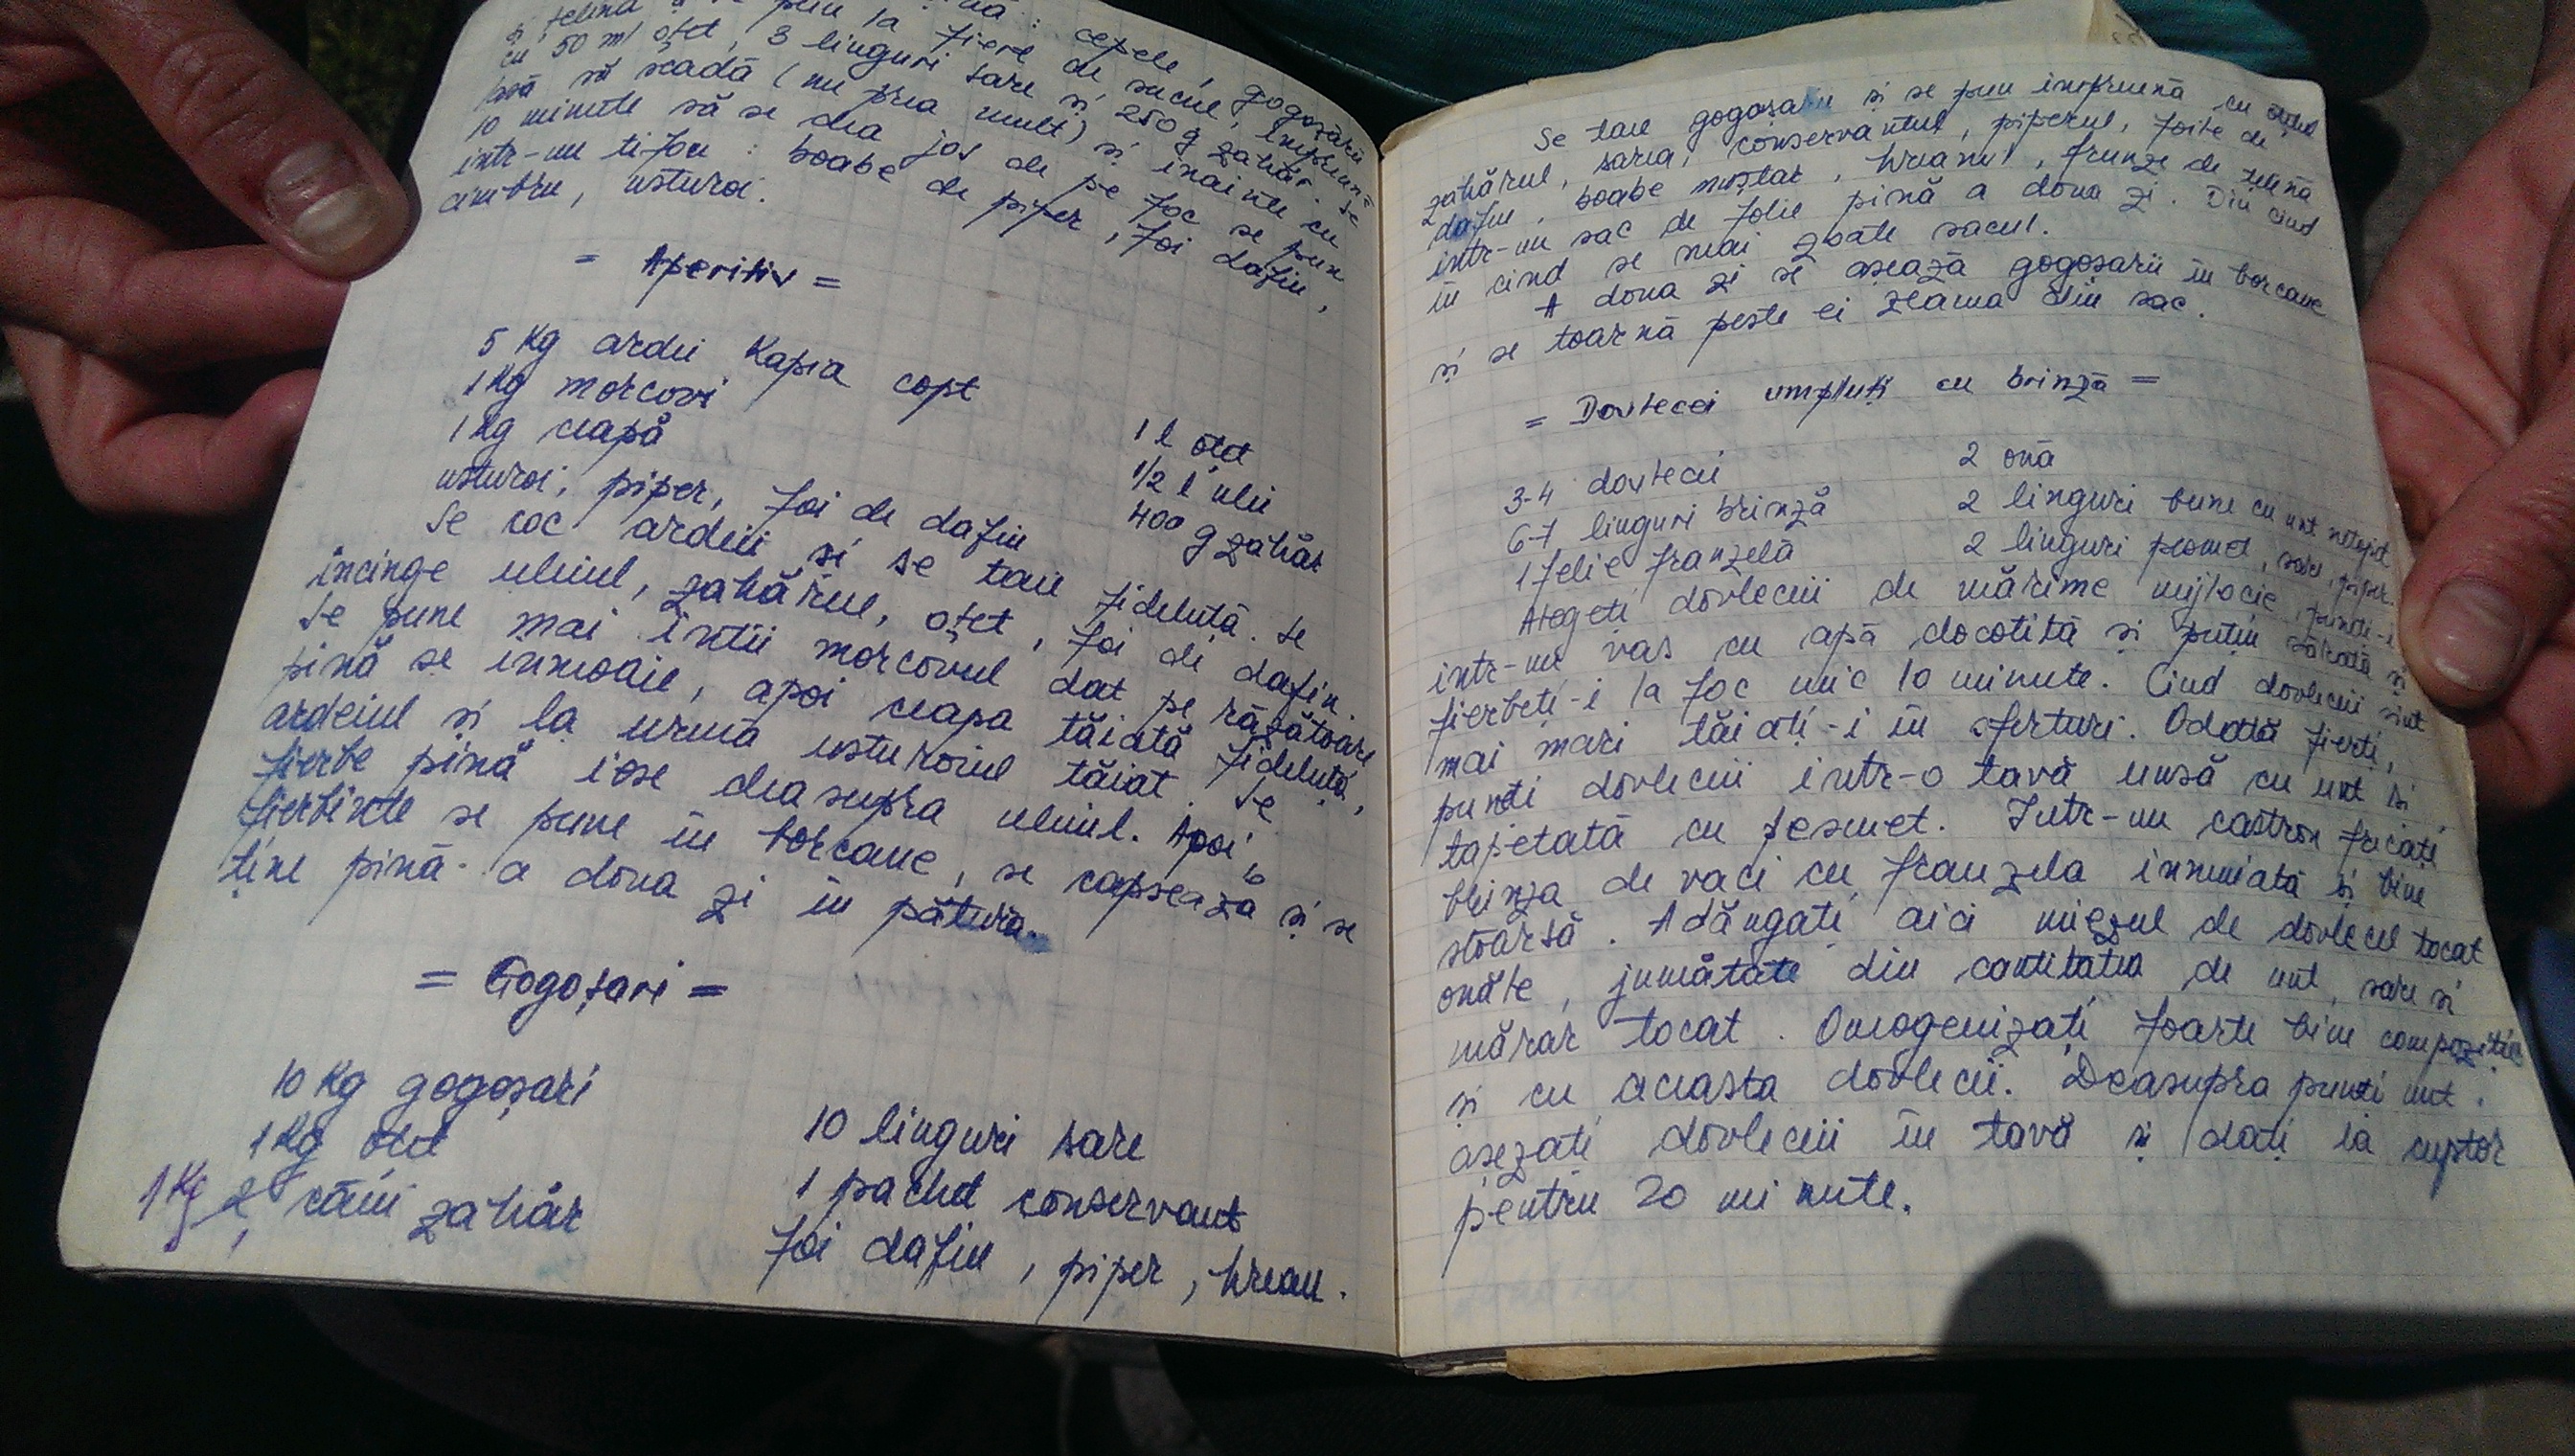 și țelina și se pun la fiere
cepele, gogoșarii
cu 50 ml oțet, 3 linguri sare și 250 g zahăr. Se
lasă să scadă (nu prea mult) și inainte cu
10 minute să se dea jos de pe foc se pun
intr-un tifon : boabe de piper, foi dafin,
cimbru, usturoi.
= Aperitiv =
5 Kg ardei Kapia copt
1 Kg morcovi
1 Kg ceapă
usturoi, piper, foi de dafin
1 l oțet
1/2 l ulei
400 g zahăr
Se coc ardeii și se taie fideluță. Se
incinge uleiul, zahărul, oțet, foi de dafin.
Se pune mai intii morcovul dat pe răzătoare
pină se inmoaie, apoi ceapa tăiată fideluță,
ardeiul și la urmă usturoiul tăiat. Se
fierbe pină iese deasupra uleiul. Apoi
fierbinte se pune in borcane, se capsează și se
ține pină a doua zi in pătură.
= Gogoșari =
10 Kg gogoșari
1 Kg oțet
1 Kg 2 căni zahăr
10 linguri sare
1 pachet conservant
foi dafin, piper, hrean.
Se taie gogoșarii și se pun impreună cu oțetul
zahărul, sarea, conservantul, piperul, foite de
dafin, boabe muștar, hreanul, frunze de țelină
intr-un sac de folie pină a doua zi. Din cind
in cind se mai zbate sacul.
A doua zi se așează gogoșarii in borcane
și se toarnă peste ei zeama din sac.
= Dovlecei umpluți cu brinză =
3-4 dovlecei
6-7 linguri brinză
1 felie franzelă
2 ouă
2 linguri bune cu unt netopit
2 linguri pesmet, sare, piper.
Alegeți dovleceii de mărime mijlocie, puneți-i
intr-un vas cu apă clocotită și puțin sărată și
fierbeți-i la foc mic 10 minute. Cind dovleceii sint
mai mari tăiați-i in sferturi. Odată fierți,
puneți dovleceii intr-o tavă unsă cu unt și
tapetată cu pesmet. Intr-un castron frecați
brinza de vaci cu franzela inmuiată și bine
stoarsă. Adăugați aici miezul de dovlecel tocat
ouăle, jumătate din cantitatea de unt, sare și
mărar tocat. Omogenizați foarte bine compoziția
și cu aceasta dovlecei. Deasupra puneți unt.
așezați dovleceii in tavă și dați la cuptor
pentru 20 minute.